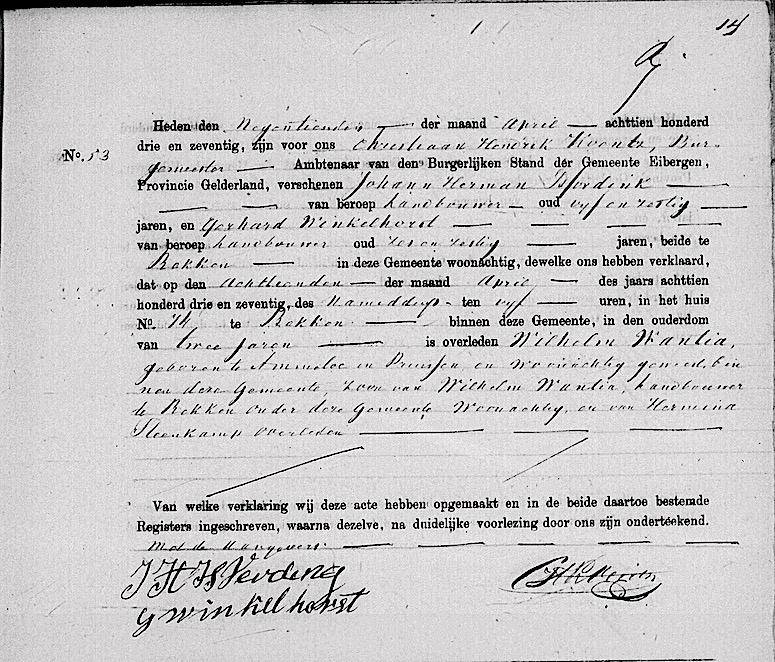 14
Heden den Negentienden der maand April achttien honderd
drie en zeventig, zijn voor ons Christiaan Hendrik Koentz, Bur-
No. 53
gemeester Ambtenaar van den Burgerlijken Stand der Gemeente Eibergen,
Provincie Gelderland, verschenen Johann Herman
van beroep Landbouwer oud vyf en zestig
jaren, en Gerhard Winkelhorst
van beroep Landbouwer oud zes en zestig jaren, beide te
Rekken in deze Gemeente woonachtig, dewelke ons hebben verklaard,
dat op den Achttienden der maand April des jaars achttien
honderd drie en zeventig, des Namiddags ten vyf uren, in het huis
No. 74 te Rekken binnen deze Gemeente, in den ouderdom
van twee jaren is overleden Wilhelm Wantia,
geboren te Ammeloe in Pruissen, en woonachtig geweest bin
nen deze Gemeente, zoon van Wilhelm Wantia, Landbouwer
te Rekken onder deze Gemeente woonachtig, en van Hermina
Steenkamp overleden
Van welke verklaring wij deze acte hebben opgemaakt en in de beide daartoe bestemde
Registers ingeschreven, waarna dezelve, na duidelijke voorlezing door ons zijn onderteekend.
met de Aangevers
J H
G winkelhorst